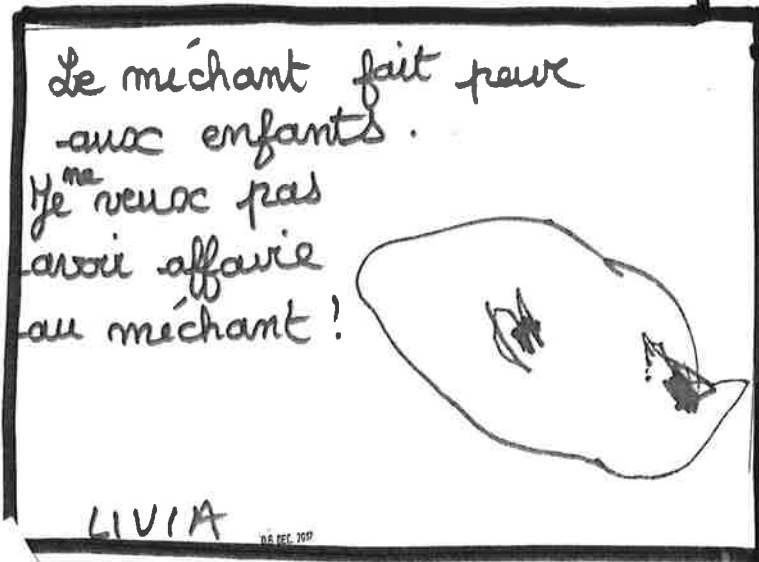 Le méchant fait peur
aux enfants.
Je ne veux pas
avoir affaire
au méchant !
LIVIA
06 DEC. 2017